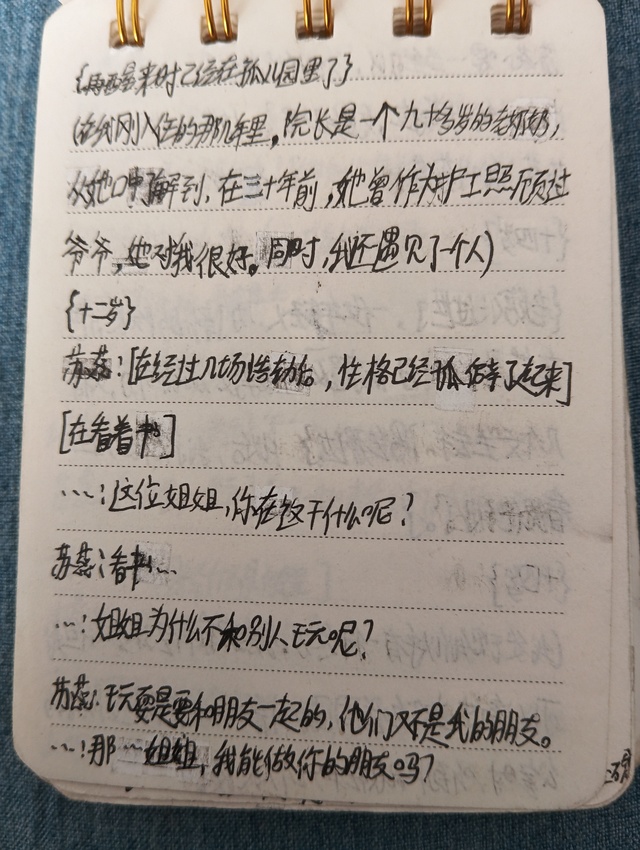 {再醒来时已经在孤儿园里了}
(在我刚入住的那几年里，院长是一个九十多岁的老奶奶，
从她口中了解到，在三十年前，她曾作为护工照顾过
爷爷，她对我很好。同时，我还遇见了一个人)
{十二岁}
苏蕊：[在经过几场 后，性格已经孤僻了起来]
[在看着书]
…：这位姐姐，你在这干什么呢？
苏蕊：看书…
…：姐姐为什么不和别人玩呢？
苏蕊：玩耍是要和朋友一起的，他们又不是我的朋友。
…：那…姐姐，我能做你的朋友吗？